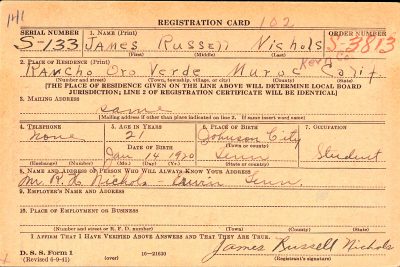 141
REGISTRATION CARD 102
SERIAL NUMBER 1. NAME (Print) ORDER NUMBER
S-133 JAMES RUSSELL NICHOLS S-3813
(First) (Middle) (Last)
2. PLACE OF RESIDENCE (Print) Kern Co
RANCHO ORO VERDE MUROC Calif
(Number and street) (Town, township, village, or city) (County) (State)
[THE PLACE OF RESIDENCE GIVEN ON THE LINE ABOVE WILL DETERMINE LOCAL BOARD
JURISDICTION; LINE 2 OF REGISTRATION CERTIFICATE WILL BE IDENTICAL]
3. MAILING ADDRESS
same
[Mailing address if other than place indicated on line 2. If same insert word same]
4. TELEPHONE 5. AGE IN YEARS 6. PLACE OF BIRTH 7. OCCUPATION
none 21 Johnson City
DATE OF BIRTH (Town or county)
Jan 14 1920 Tenn Student
(Exchange) (Number) (Mo.) (Day) (Yr.) (State or country)
8. NAME AND ADDRESS OF PERSON WHO WILL ALWAYS KNOW YOUR ADDRESS
Mr. R. L. Nichols - Erwin Tenn.
9. EMPLOYER'S NAME AND ADDRESS
10. PLACE OF EMPLOYMENT OR BUSINESS
(Number and street or R. F. D. number) (Town) (County) (State)
I AFFIRM THAT I HAVE VERIFIED ABOVE ANSWERS AND THAT THEY ARE TRUE.
D. S. S. Form 1 16-21630 James Russell Nichols
(Revised 6-9-41) (over) (Registrant's signature)